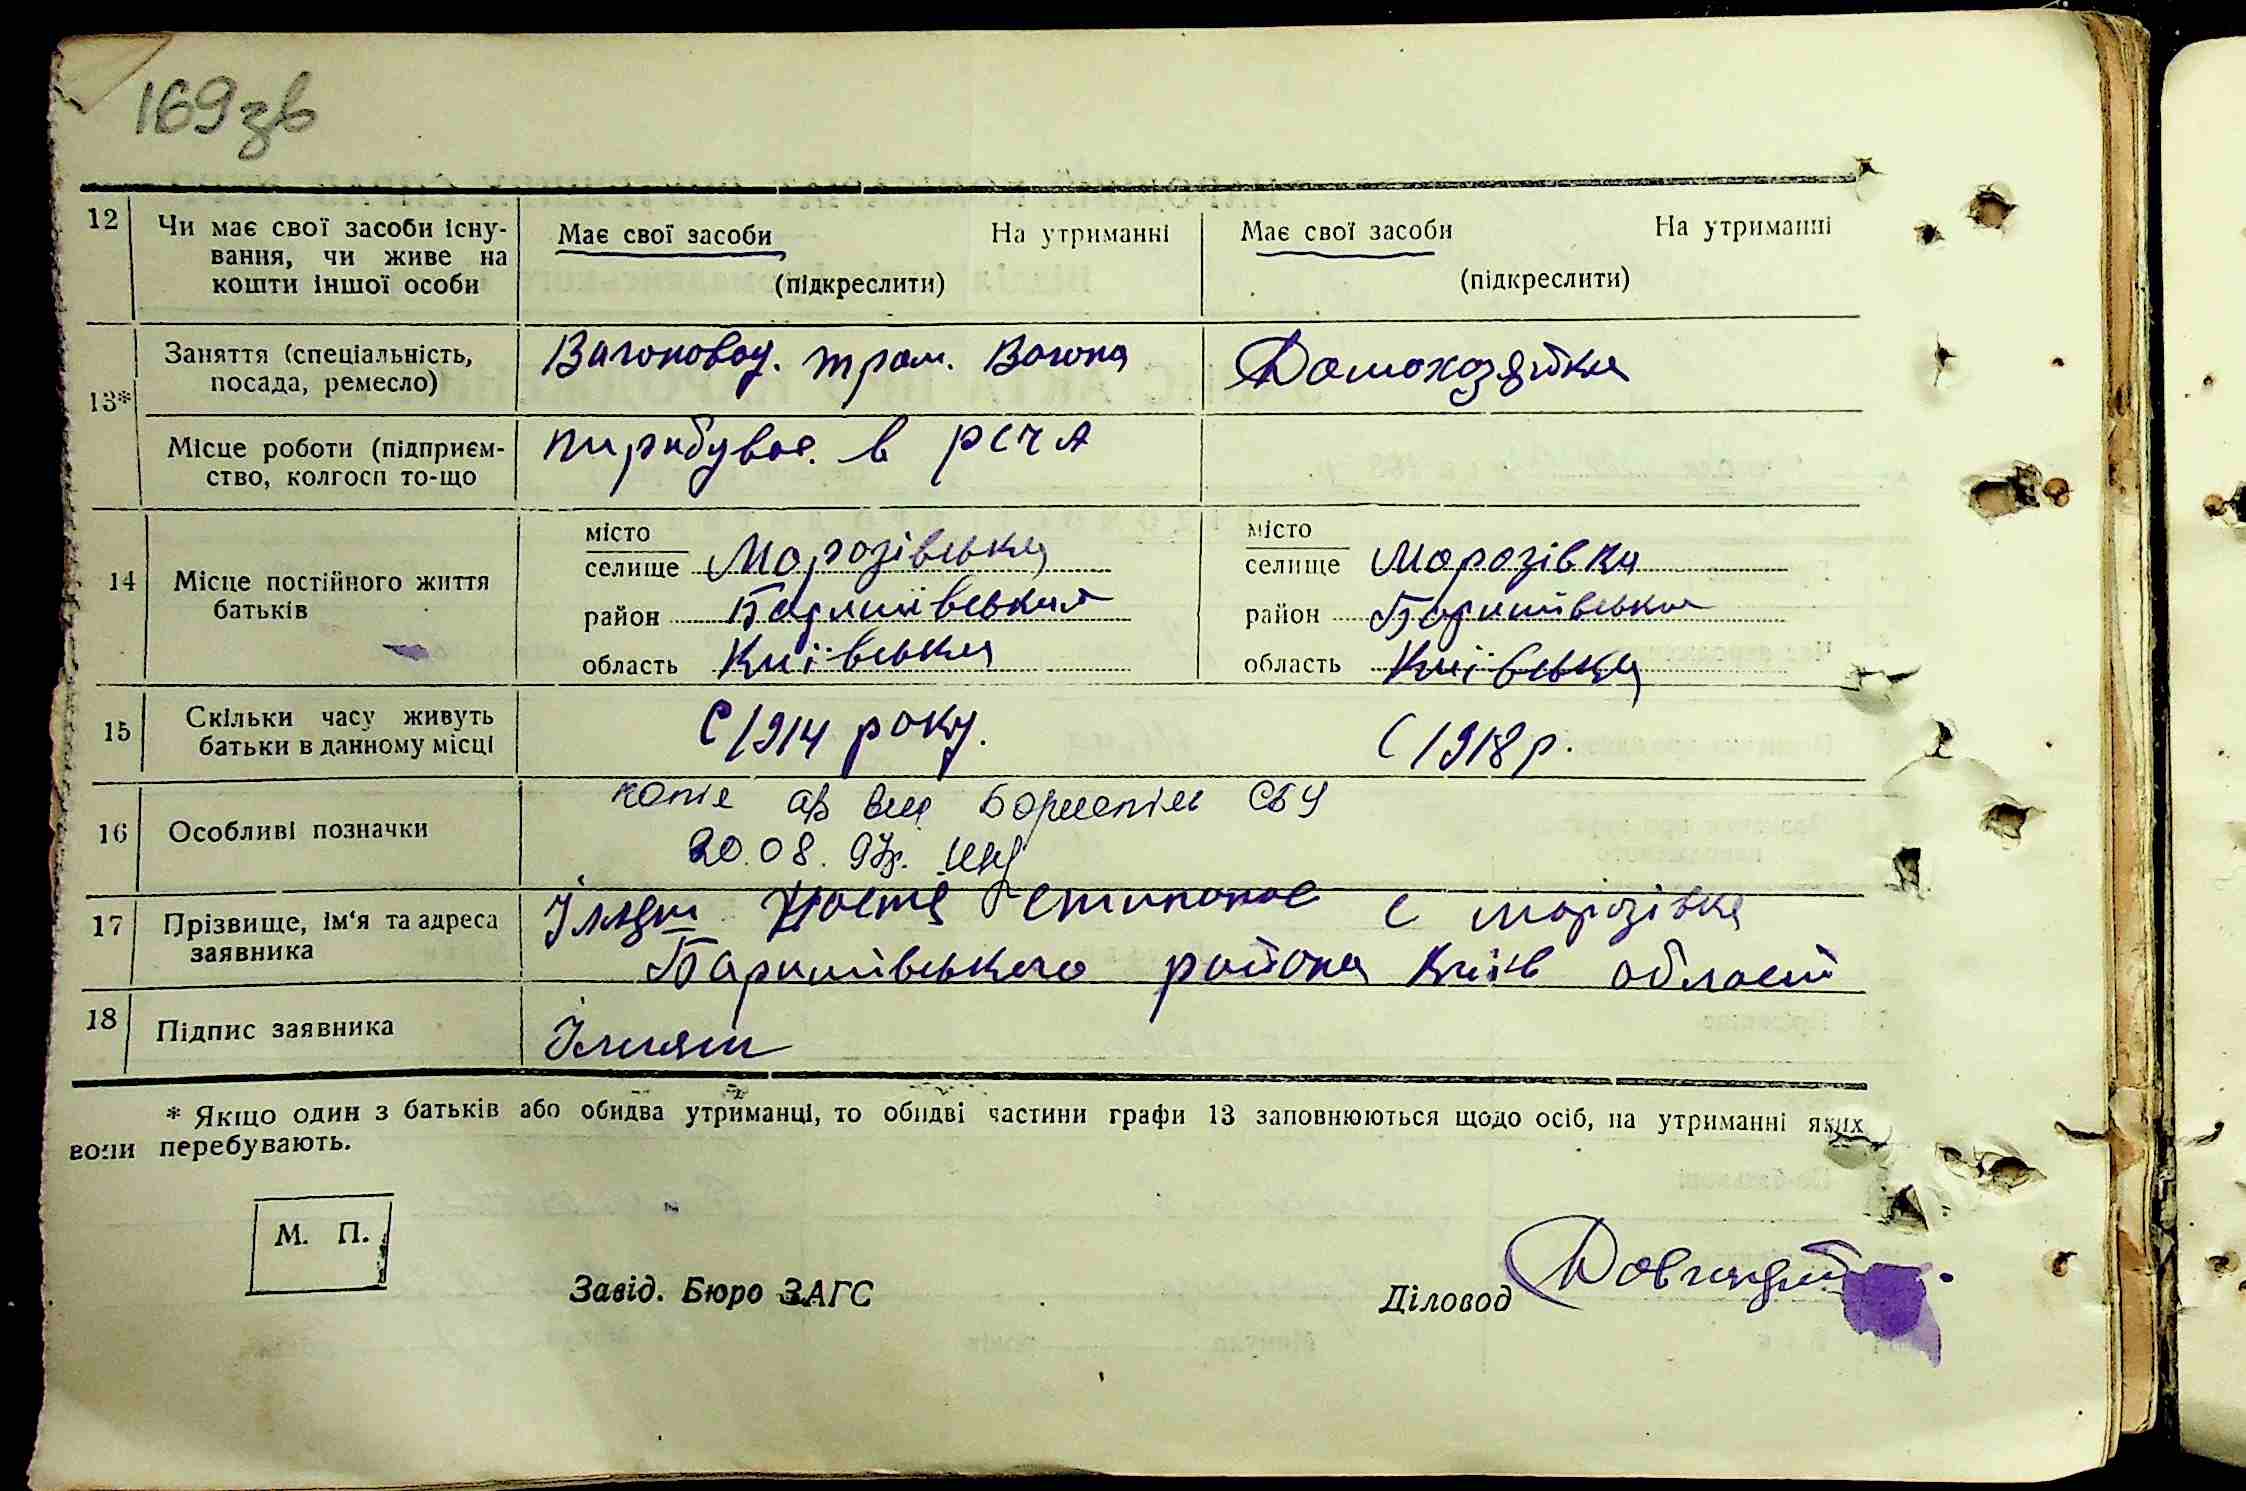 169зв
12 Чи має свої засоби існу- Має свої засоби На утриманні Має свої засоби На утриманні
вання, чи живе на
кошти іншої особи (підкреслити) (підкреслити)
13* Заняття (спеціальність, Вагоновод. трам. Вагона Домохозяйка
посада, ремесло)
Місце роботи (підприєм- в РСЧА
ство, колгосп то-що
14 Місце постійного життя
батьків
місто
селище Морозівська
район Баришівська
область Київська
місто
селище Морозівка
район Баришівська
область Київська
15 Скільки часу живуть С 1914 року. С 1918 р.
батьки в данному місці
16 Особливі позначки копія Бориспіль СБУ
20.08.97р.
17 Прізвище, ім'я та адреса с Морозівка
заявника Баришівського района Київ області
18 Підпис заявника
* Якщо один з батьків або обидва утриманці, то обидві частини графи 13 заповнюються щодо осіб, на утриманні яких
вони перебувають.
М. П.
Завід. Бюро ЗАГС Діловод